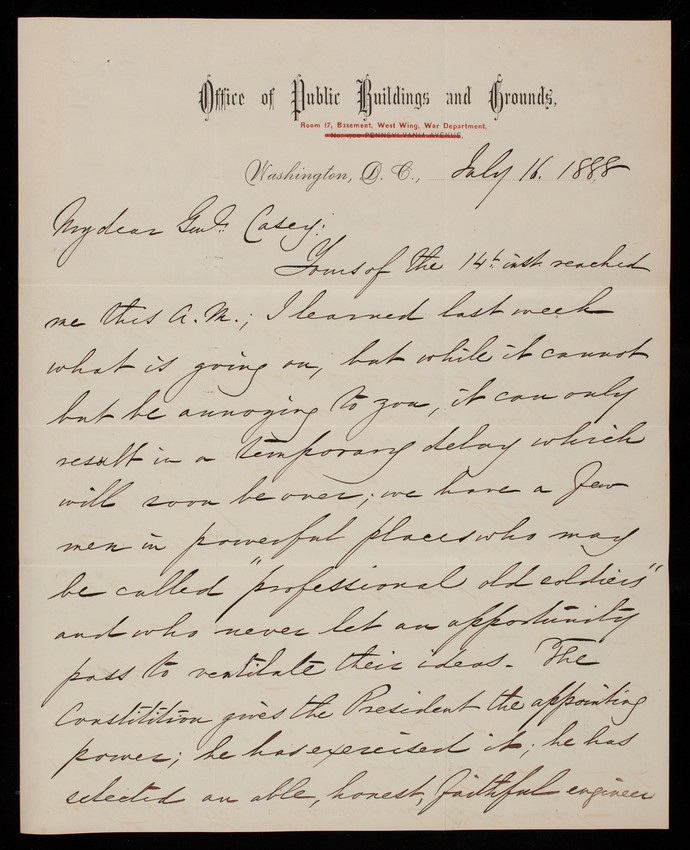 Office of Public Buildings and Grounds,
Room 17, Basement, West Wing, War Department,
No. 1700 PENNSYLVANIA AVENUE.
Washington, D. C., July 16. 1888
My dear Genl. Casey:
Yours of the 14th inst. reached
me this A.M.; I learned last week
what is going on, but while it cannot
but be annoying to you, it can only
result in a temporary delay which
will soon be over; we have a few
men in powerful places who may
be called "professional old soldiers"
and who never let an opportunity
pass to ventilate their ideas. The
Constitution gives the President the appointing
power; he has exercised it; he has
selected an able, honest, faithful engineer